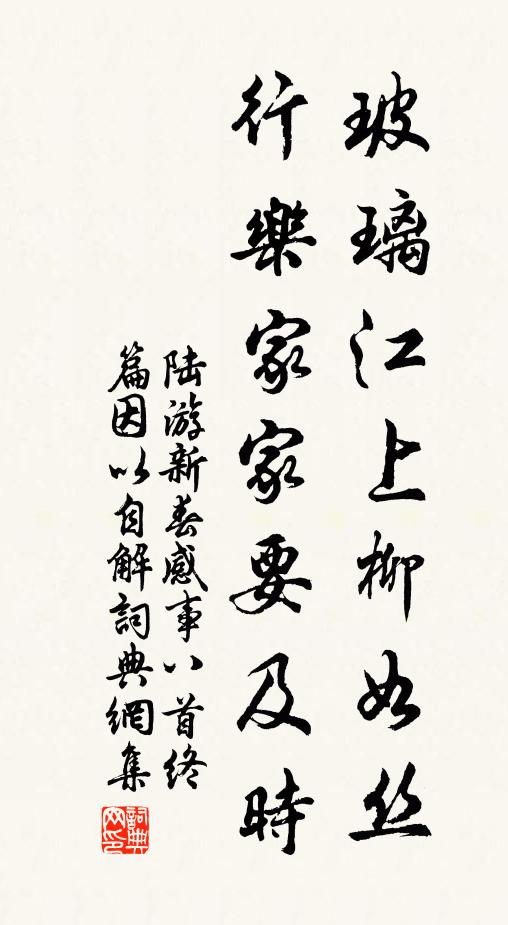 玻璃江上柳如丝
行樂家家要及時
陆游新春感事八首终
篇因以自解詞典網集
詞典
网印